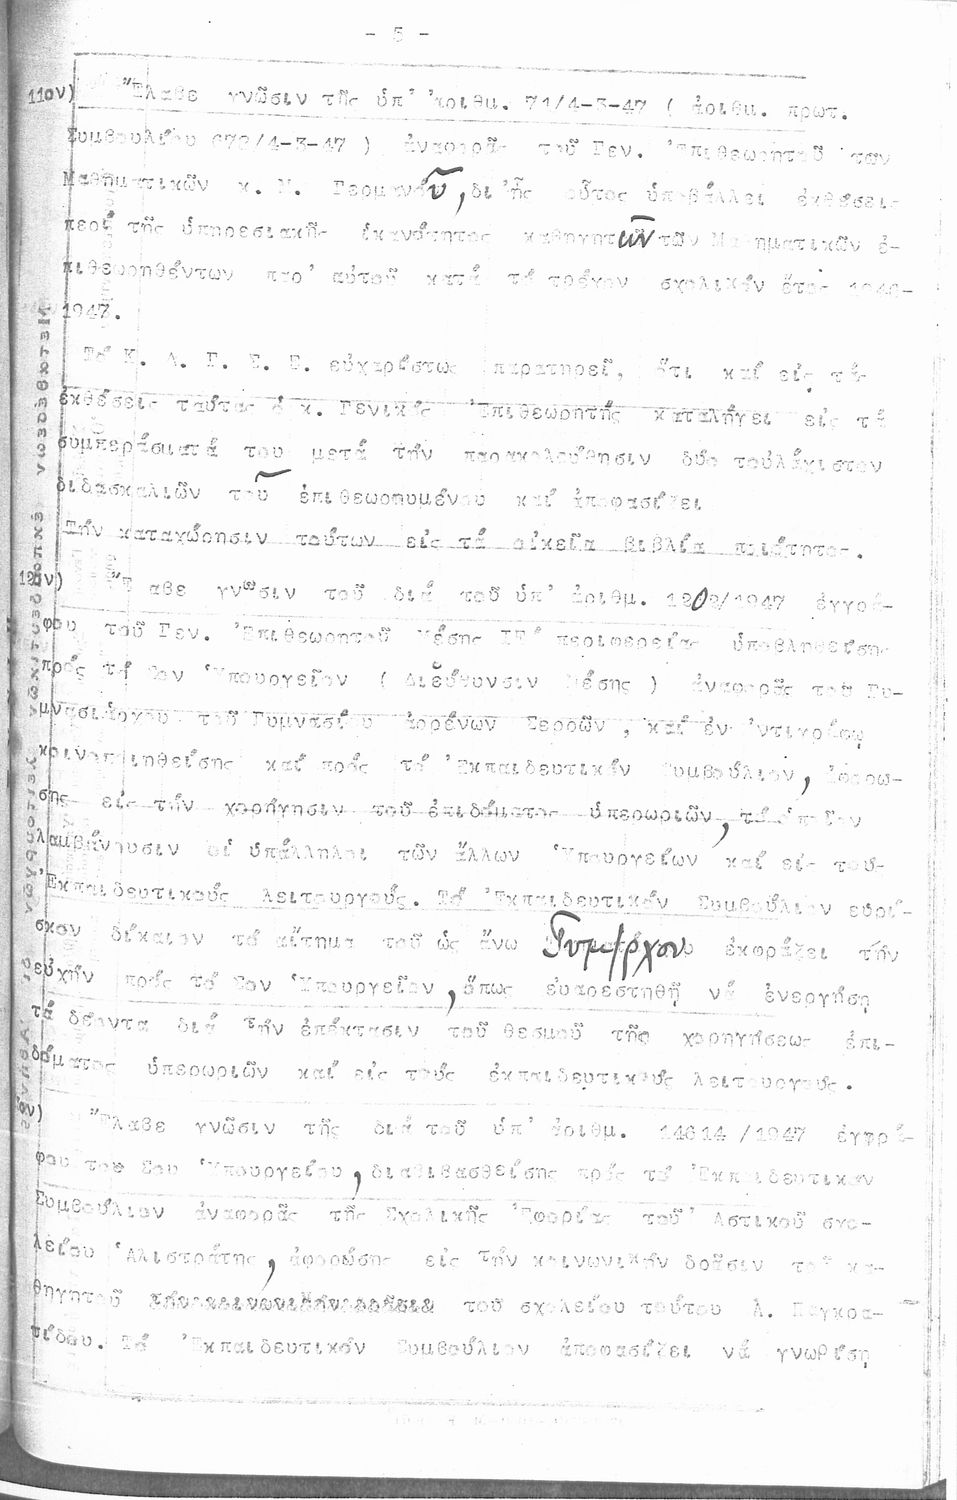 - 5 -
11ον) Ἔλαβε γνῶσιν τῆς ὑπ' ἀριθμ. 71/4-3-47 ( ἀριθμ. πρωτ.
Συμβουλίου 672/4-3-47 ) ἀναφορᾶς τοῦ Γεν. Ἐπιθεωρητοῦ τῶν
Μαθηματικῶν κ. Ν. Γερμανοῦ, δι' ἧς οὗτος ὑποβάλλει ἐκθέσεις
περί τῆς ὑπηρεσιακῆς ἱκανότητος καθηγητῶν τῶν Μαθηματικῶν ἐ-
πιθεωρηθέντων παρ' αὐτοῦ κατά τό τρέχον σχολικόν ἔτος 1946-
1947.
Τό Κ. Δ. Γ. Σ. Ε. εὐχαρίστως παρατηρεῖ, ὅτι καί εἰς τάς
ἐκθέσεις ταύτας ὁ κ. Γενικός Ἐπιθεωρητής καταλήγει εἰς τά
συμπεράσματά του μετά τήν παρακολούθησιν δύο τοὐλάχιστον
διδασκαλιῶν τοῦ ἐπιθεωρουμένου καί ἀποφασίζει
Τήν καταχώρησιν τούτων εἰς τά οἰκεῖα βιβλία ποιότητος.
12ον) Ἔλαβε γνῶσιν τοῦ διά τοῦ ὑπ' ἀριθμ. 1202/1947 ἐγγρά-
φου τοῦ Γεν. Ἐπιθεωρητοῦ Μέσης περιφερείας ὑποβληθείσης
πρός τό Σον Ὑπουργεῖον ( Διεύθυνσιν Μέσης ) ἀναφορᾶς τοῦ Γυ-
μνασιάρχου τοῦ Γυμνασίου ἀρρένων Σερρῶν, καί ἐν ἀντιγράφῳ
κοινοποιηθείσης καί πρός τό Ἐκπαιδευτικόν Συμβούλιον, ἀφορώ-
σης εἰς τήν χορήγησιν τοῦ ἐπιδόματος ὑπερωριῶν, τό ὁποῖον
λαμβάνουσιν οἱ ὑπάλληλοι τῶν ἄλλων Ὑπουργείων καί εἰς τούς
Ἐκπαιδευτικούς λειτουργούς. Τό Ἐκπαιδευτικόν Συμβούλιον εὑρί-
σκον δίκαιον τό αἴτημα τοῦ ὡς ἄνω Γυμ/ρχου ἐκφράζει τήν
εὐχήν πρός τό Σον Ὑπουργεῖον, ὅπως εὐαρεστηθῇ νά ἐνεργήσῃ
τά δέοντα διά τήν ἐπέκτασιν τοῦ θεσμοῦ τῆς χορηγήσεως ἐπι-
δόματος ὑπερωριῶν καί εἰς τούς ἐκπαιδευτικούς λειτουργούς.
Ἔλαβε γνῶσιν τῆς διά τοῦ ὑπ' ἀριθμ. 14614/1947 ἐγγρά-
φου τοῦ Σου Ὑπουργείου, διαβιβασθείσης πρός τό Ἐκπαιδευτικόν
Συμβούλιον ἀναφορᾶς τῆς Σχολικῆς Ἐφορίας τοῦ Ἀστικοῦ σχο-
λείου Ἀλιστράτης, ἀφορώσης εἰς τήν κοινωνικήν δρᾶσιν τοῦ κα-
θηγητοῦ τοῦ σχολείου τούτου Α. Παγκρα-
τίδου. Τό Ἐκπαιδευτικόν Συμβούλιον ἀποφασίζει νά γνωρίσῃ